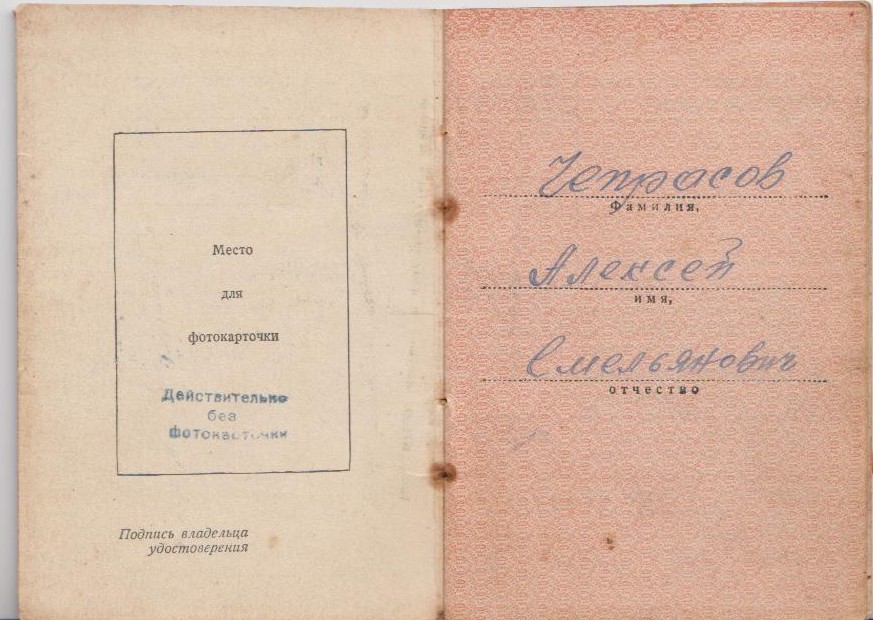 Место
для
фотокарточки
Действительно
без
фотокарточки
Подпись владельца
удостоверения
Чепрасов
Фамилия,
Алексей
имя,
Емельянович
отчество